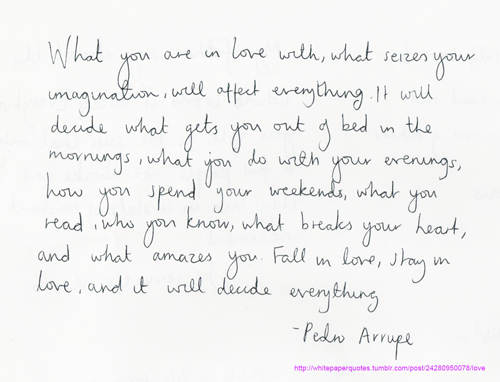 What you are in love with, what seizes your
imagination, will affect everything. It will
decide what gets you out of bed in the
mornings, what you do with your evenings,
how you spend your weekends, what you
read, who you know, what breaks your heart,
and what amazes you. Fall in love, stay in
love, and it will decide everything
-Pedro Arrupe
http://whitepaperquotes.tumblr.com/post/24280950078/love